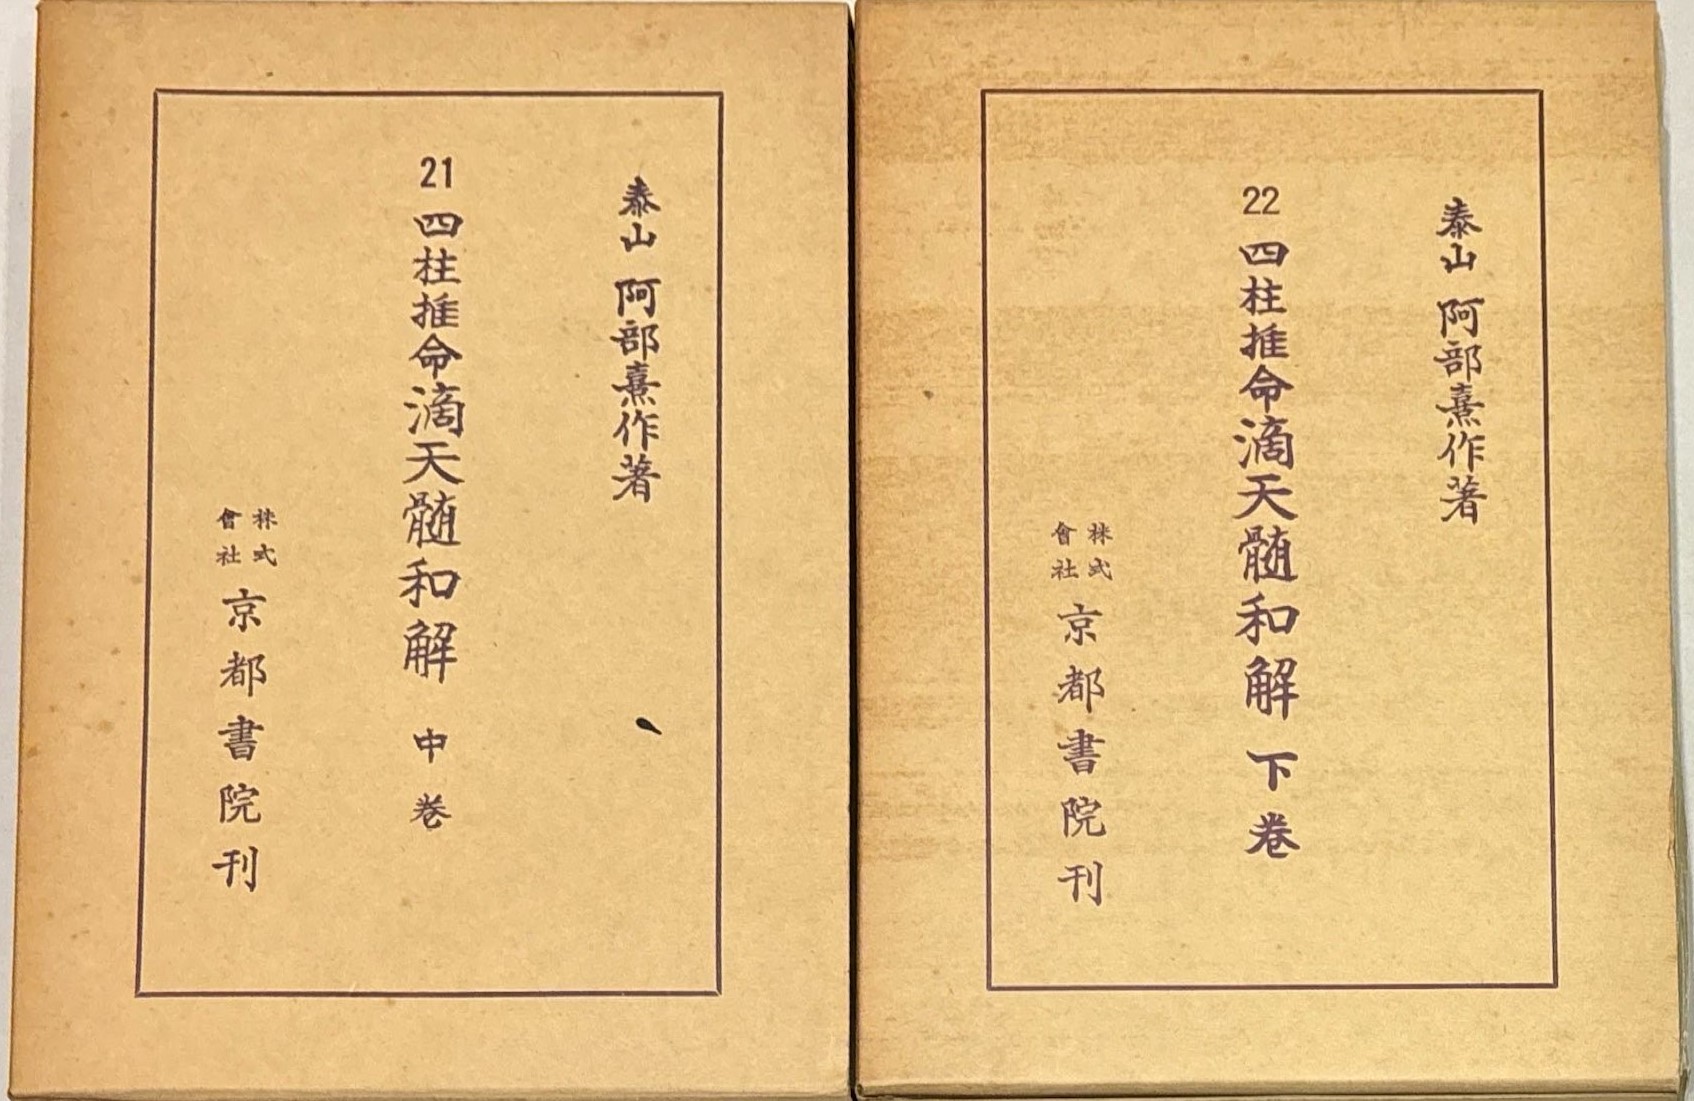 泰山 阿部熹作著
21 四柱推命滴天髄和解 中巻
株式會社 京都書院刊
泰山 阿部熹作著
22 四柱推命滴天髄和解 下巻
株式會社 京都書院刊